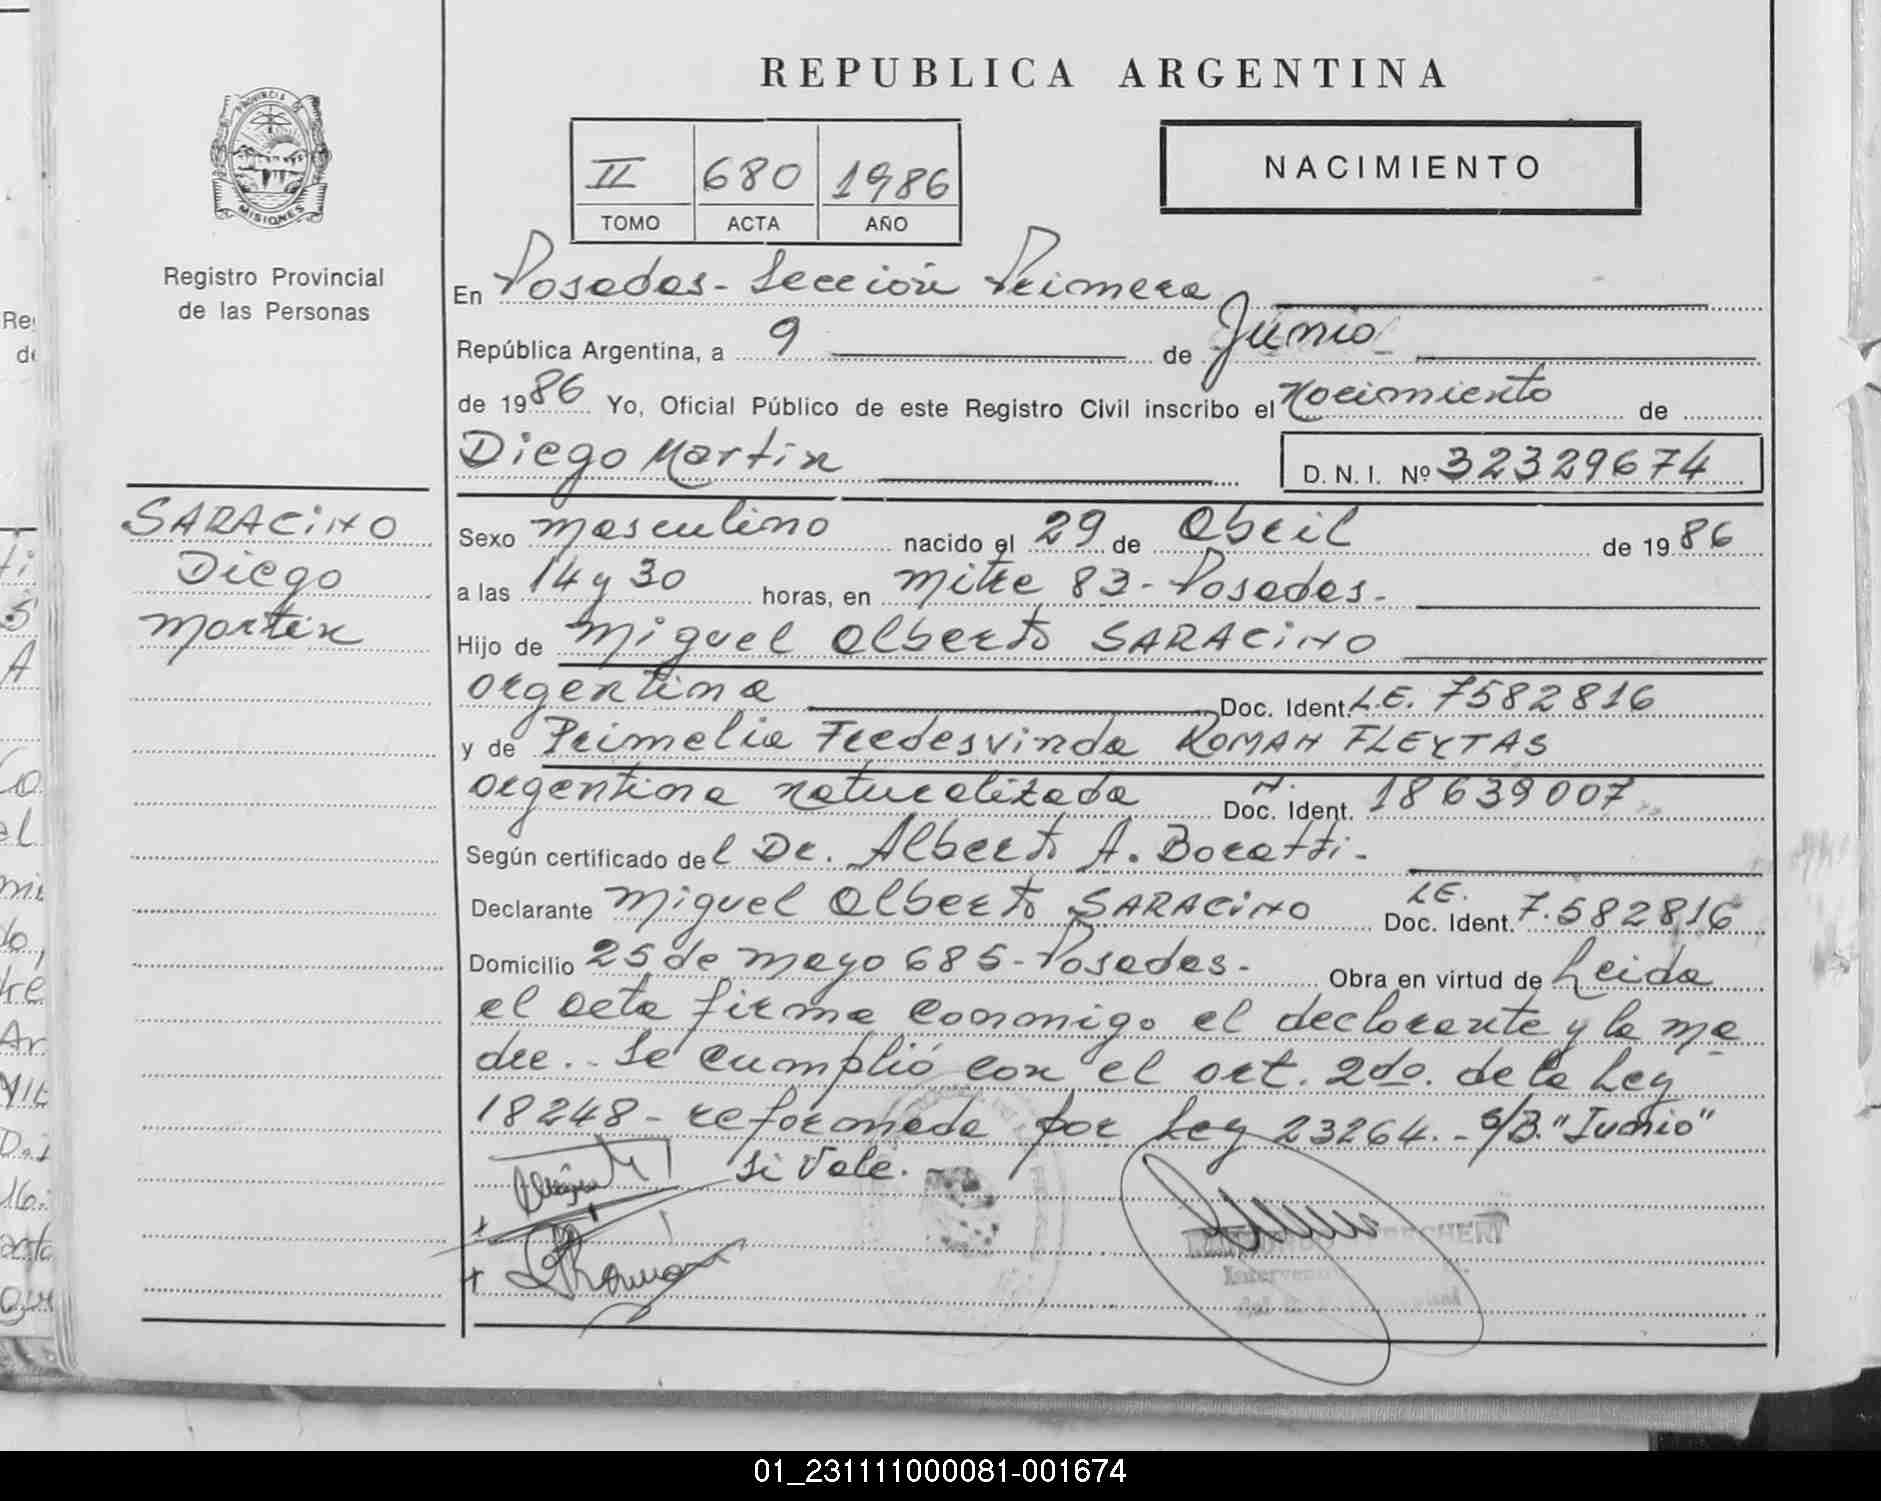 REPUBLICA ARGENTINA
PROVINCIA DE
MISIONES
Registro Provincial
de las Personas
II 680 1986
TOMO ACTA AÑO
NACIMIENTO
En Posadas - Sección Primera
República Argentina, a 9 de Junio
de 1986 Yo, Oficial Público de este Registro Civil inscribo el Nacimiento de
Diego Martin D. N. I. Nº 32329674
SARACINO
Diego
Martin
Sexo Masculino nacido el 29 de Abril de 1986
a las 14 y 30 horas, en Mitre 83 - Posadas.
Hijo de Miguel Alberto SARACINO
argentina Doc. Ident. L.E. 7582816
y de Primelia Fredesvinda ROMAN FLEYTAS
argentina naturalizada Doc. Ident. 18639007
Según certificado del Dr. Alberto A. Boratti.
Declarante Miguel Alberto SARACINO L.E. Doc. Ident. 7.582816
Domicilio 25 de Mayo 685 - Posadas. Obra en virtud de Leida
el acta firma conmigo el declarante y la ma
dre. - Se cumplió con el art. 2do. de la Ley
18248 - reformada por Ley 23264. - s/B. "Junio"
Si Vale.
01_231111000081-001674